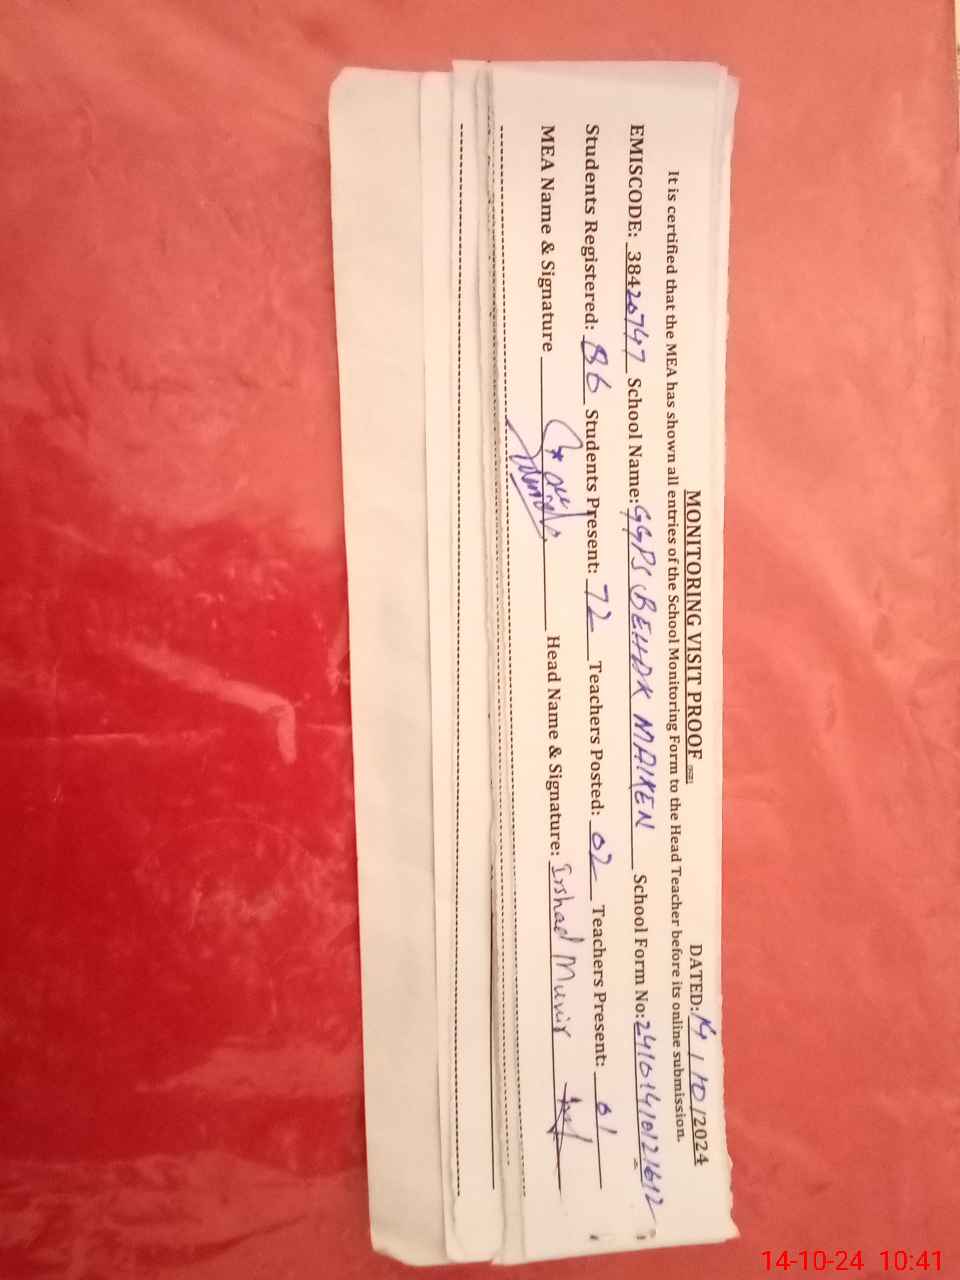 MONITORING VISIT PROOF DATED: 14/10/2024
It is certified that the MEA has shown all entries of the School Monitoring Form to the Head Teacher before its online submission.
EMISCODE: 38420747 School Name: GGPS BEHAK MAIKEN School Form No: 24101410121612
Students Registered: 86 Students Present: 72 Teachers Posted: 02 Teachers Present: 01
MEA Name & Signature Head Name & Signature: Irshad Munir
14-10-24 10:41